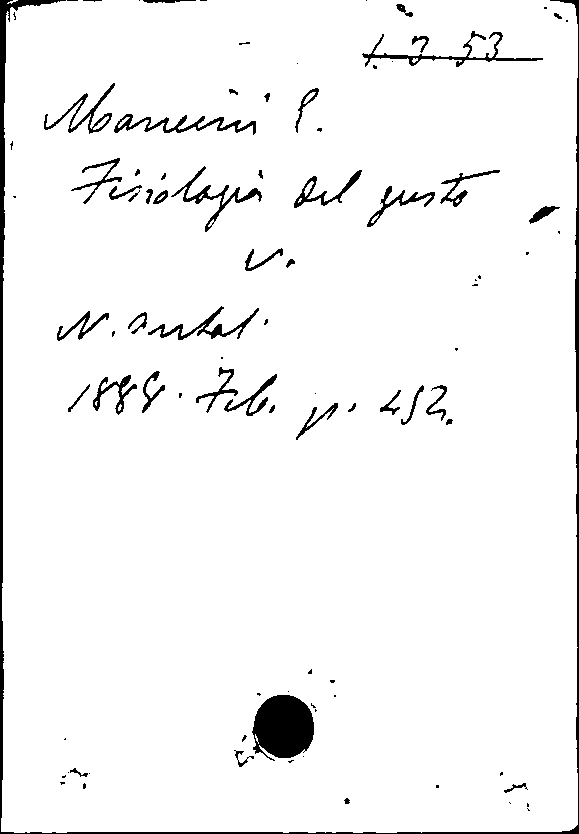 1. 3. 53
Mancini P.
Fisiologia del gusto
v.
N. antol.
1888. Feb. p. 452.